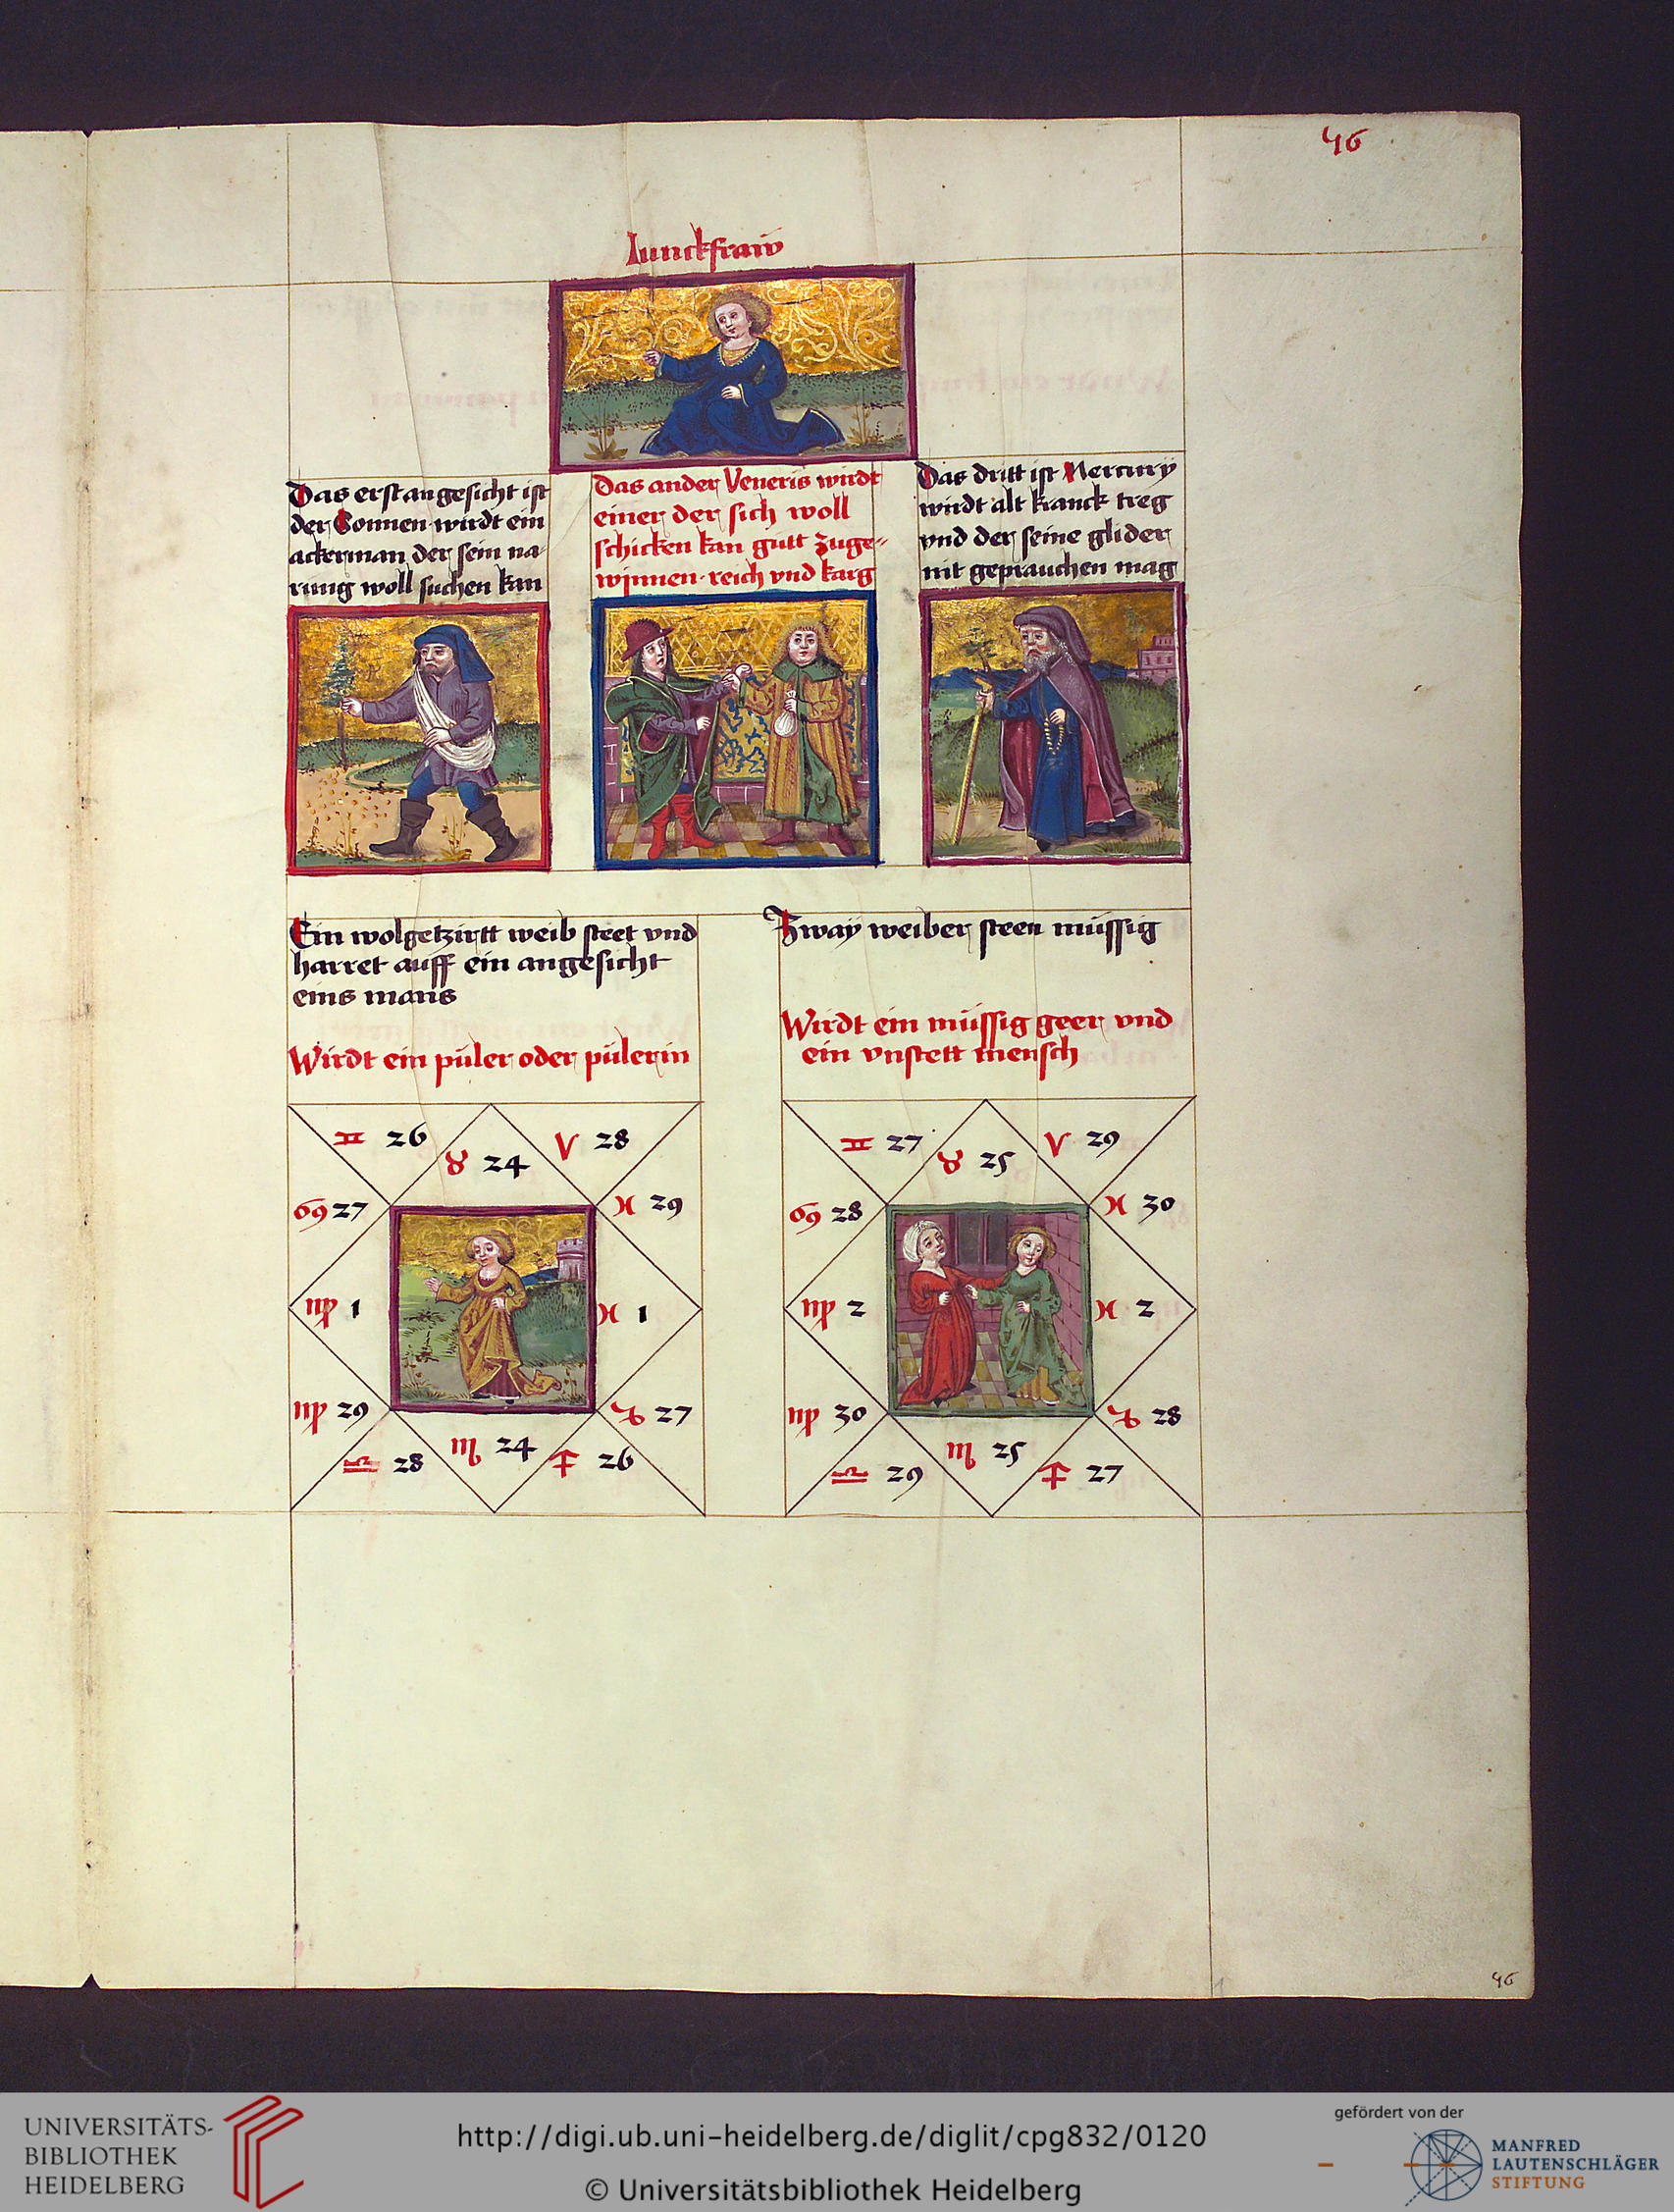 46
Junckfraw
Das erst angesicht ist
der Sonnen wirdt ein
ackerman der sein na-
rung woll suchen kan
Das ander Veneris wirdt
einer der sich woll
schicken kan gutt zuge-
winnen · reich vnd karg
Das dritt ist Mercury
wirdt alt kranck treg
vnd der seine glider
nit geprauchen mag
Ein wolgetzirtt weib steet vnd
harret auff ein angesicht
eins mans
Wirdt ein püler oder pülerin
Zway weiber steen müssig
Wirdt ein müssig geer vnd
ein vnstett mensch
♊ 26
♉ 24
♈ 28
♋ 27
♓ 29
♍ 1
♓ 1
♍ 29
♑ 27
♎ 28
♏ 24
♐ 26
♊ 27
♉ 25
♈ 29
♋ 28
♓ 30
♍ 2
♓ 2
♍ 30
♑ 28
♎ 29
♏ 25
♐ 27
46
UNIVERSITÄTS-
BIBLIOTHEK
HEIDELBERG
http://digi.ub.uni-heidelberg.de/diglit/cpg832/0120
© Universitätsbibliothek Heidelberg
gefördert von der
MANFRED
LAUTENSCHLÄGER
STIFTUNG